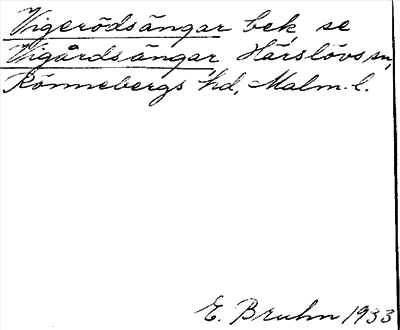 Vigerödsängar bek, se
Vigårdsängar, Härslövs sn,
Rönnebergs hd, Malm. l.
E. Bruhn 1933